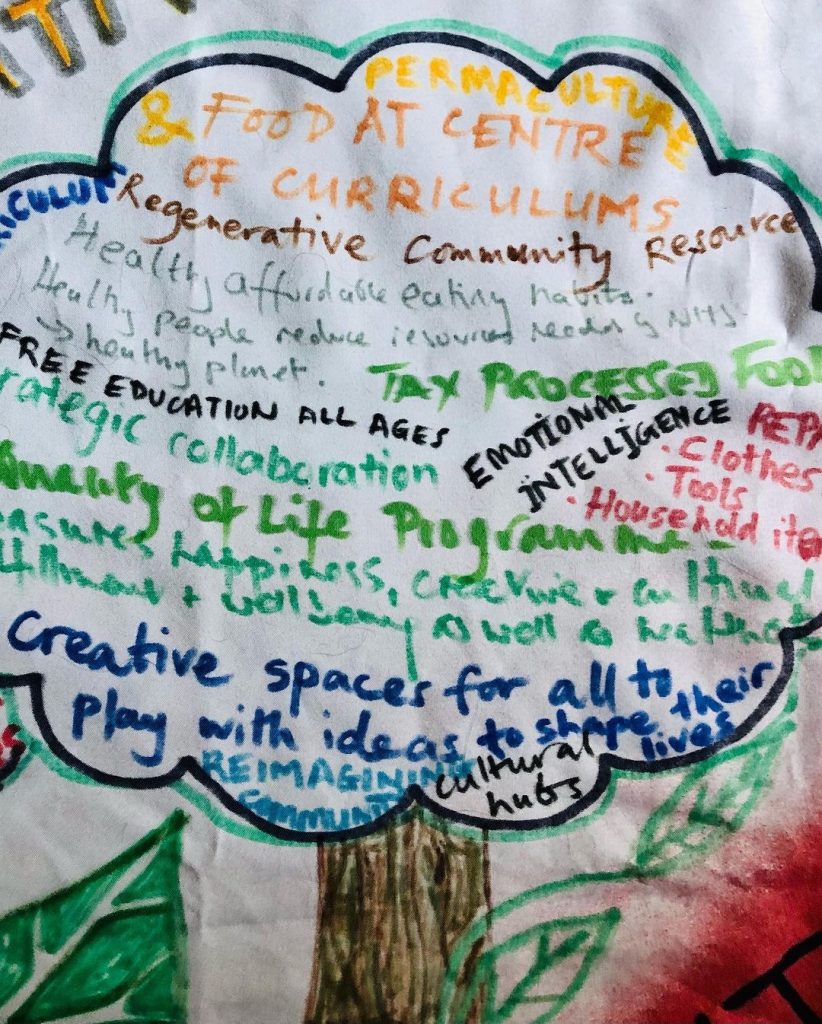 PERMACULTURE
& FOOD AT CENTRE
OF CURRICULUMS
Regenerative Community Resource
Healthy affordable eating habits.
Healthy people reduce resources needed by NHS
→ healthy planet.
TAX PROCESSED FOOD
FREE EDUCATION ALL AGES
collaboration
EMOTIONAL
INTELLIGENCE
· Clothes
· Tools
· Household
Quality of Life Programme -
happiness, creative + cultural
+ wellbeing as well as
Creative spaces for all to
play with ideas to shape their
lives
REIMAGINING
COMMUNITY
cultural
hubs